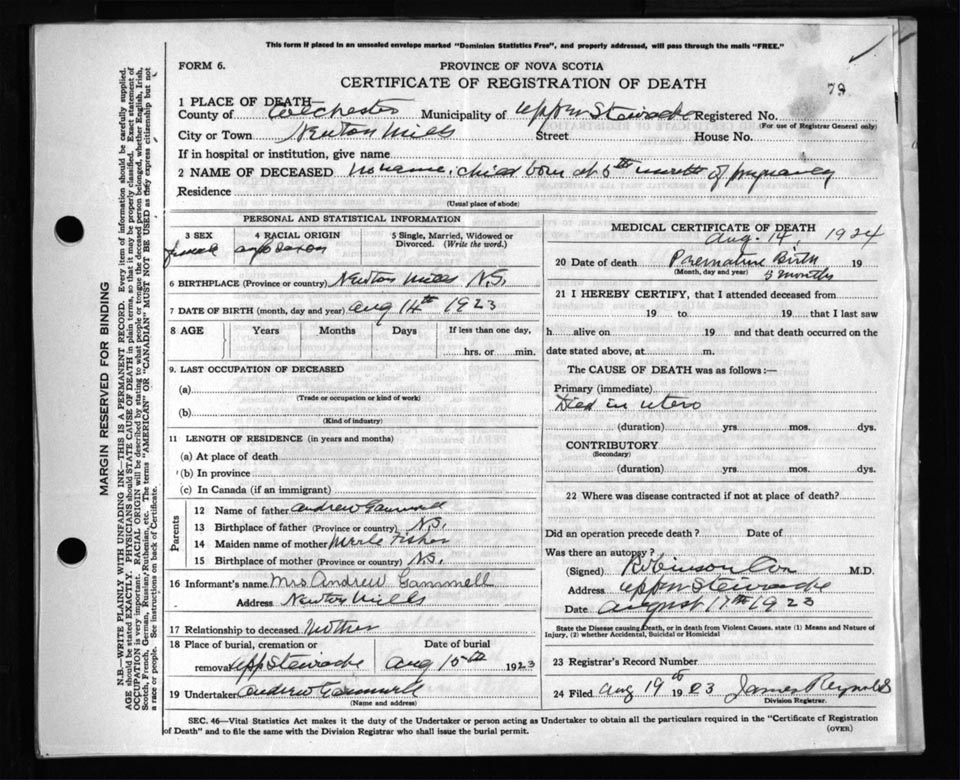 This form if placed in an unsealed envelope marked "Dominion Statistics Free", and properly addressed, will pass through the mails "FREE."
FORM 6.
PROVINCE OF NOVA SCOTIA
CERTIFICATE OF REGISTRATION OF DEATH
79
1 PLACE OF DEATH—
County of Colchester Municipality of Upper Stewiacke Registered No.
(For use of Registrar General only)
City or Town Newton Mills Street House No.
If in hospital or institution, give name
2 NAME OF DECEASED no name, child born at 5th month of pregnancy
Residence
(Usual place of abode)
PERSONAL AND STATISTICAL INFORMATION
3 SEX 4 RACIAL ORIGIN 5 Single, Married, Widowed or Divorced. (Write the word.)
female
6 BIRTHPLACE (Province or country) Newton Mills N.S.
7 DATE OF BIRTH (month, day and year) Aug 14th 1923
8 AGE Years Months Days If less than one day,
hrs. or min.
9. LAST OCCUPATION OF DECEASED
(a)
(Trade or occupation or kind of work)
(b)
(Kind of industry)
11 LENGTH OF RESIDENCE (in years and months)
(a) At place of death
(b) In province
(c) In Canada (if an immigrant)
Parents
12 Name of father Andrew Gammell
13 Birthplace of father (Province or country) N.S.
14 Maiden name of mother Merle Fisher
15 Birthplace of mother (Province or country) N.S.
16 Informant's name Mrs Andrew Gammell
Address Newton Mills
17 Relationship to deceased Mother
18 Place of burial, cremation or Date of burial
removal Upp Stewiacke Aug 15th 1923
19 Undertaker Andrew Gammell
(Name and address)
MEDICAL CERTIFICATE OF DEATH
Aug. 14, 1924
20 Date of death Premature Birth 19
(Month, day and year) 5 months
21 I HEREBY CERTIFY, that I attended deceased from
19 to 19 that I last saw
h alive on 19 and that death occurred on the
date stated above, at m.
The CAUSE OF DEATH was as follows:—
Primary (immediate)
Died in utero
(duration) yrs. mos. dys.
CONTRIBUTORY
(Secondary)
(duration) yrs. mos. dys.
22 Where was disease contracted if not at place of death?
Did an operation precede death? Date of
Was there an autopsy?
(Signed) Robinson Cox M.D.
Address Upper Stewiacke
Date August 17th 1923
State the Disease causing Death, or in death from Violent Causes, state (1) Means and Nature of
Injury, (2) whether Accidental, Suicidal or Homicidal
23 Registrar's Record Number
24 Filed Aug 19th 1923 James Reynolds
Division Registrar.
SEC. 46—Vital Statistics Act makes it the duty of the Undertaker or person acting as Undertaker to obtain all the particulars required in the "Certificate of Registration
of Death" and to file the same with the Division Registrar who shall issue the burial permit.
(OVER)
MARGIN RESERVED FOR BINDING
N.B.—WRITE PLAINLY WITH UNFADING INK—THIS IS A PERMANENT RECORD. Every item of information should be carefully supplied.
AGE should be stated EXACTLY. PHYSICIANS should STATE CAUSE OF DEATH in plain terms, so that it may be properly classified. Exact statement of
OCCUPATION is very important. RACIAL ORIGIN will be described by stating to what people or tongue the deceased person belonged, whether English, Irish,
Scotch, French, German, Russian, Ruthenian, etc. The terms "AMERICAN" OR "CANADIAN" MUST NOT BE USED as they express citizenship but not
a race or people. See instructions on back of Certificate.